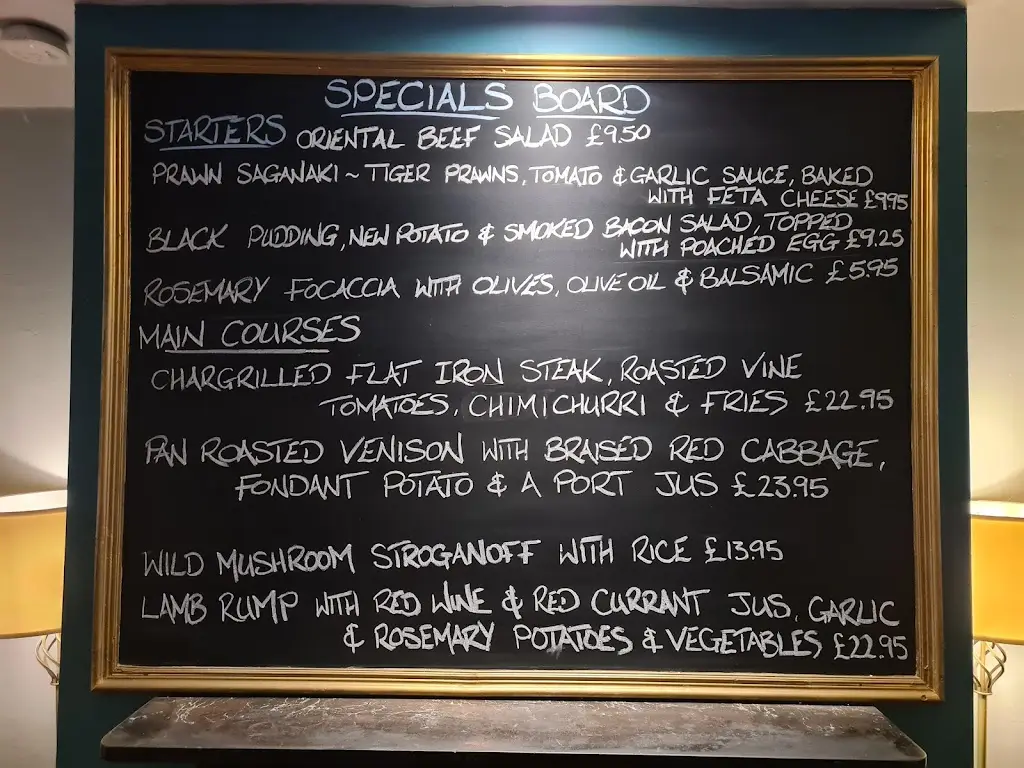 SPECIALS BOARD
STARTERS ORIENTAL BEEF SALAD £9.50
PRAWN SAGANAKI ~ TIGER PRAWNS, TOMATO & GARLIC SAUCE, BAKED
WITH FETA CHEESE £9.95
BLACK PUDDING, NEW POTATO & SMOKED BACON SALAD, TOPPED
WITH POACHED EGG £9.25
ROSEMARY FOCACCIA WITH OLIVES, OLIVE OIL & BALSAMIC £5.95
MAIN COURSES
CHARGRILLED FLAT IRON STEAK, ROASTED VINE
TOMATOES, CHIMICHURRI & FRIES £22.95
PAN ROASTED VENISON WITH BRAISED RED CABBAGE,
FONDANT POTATO & A PORT JUS £23.95
WILD MUSHROOM STROGANOFF WITH RICE £13.95
LAMB RUMP WITH RED WINE & RED CURRANT JUS, GARLIC
& ROSEMARY POTATOES & VEGETABLES £22.95